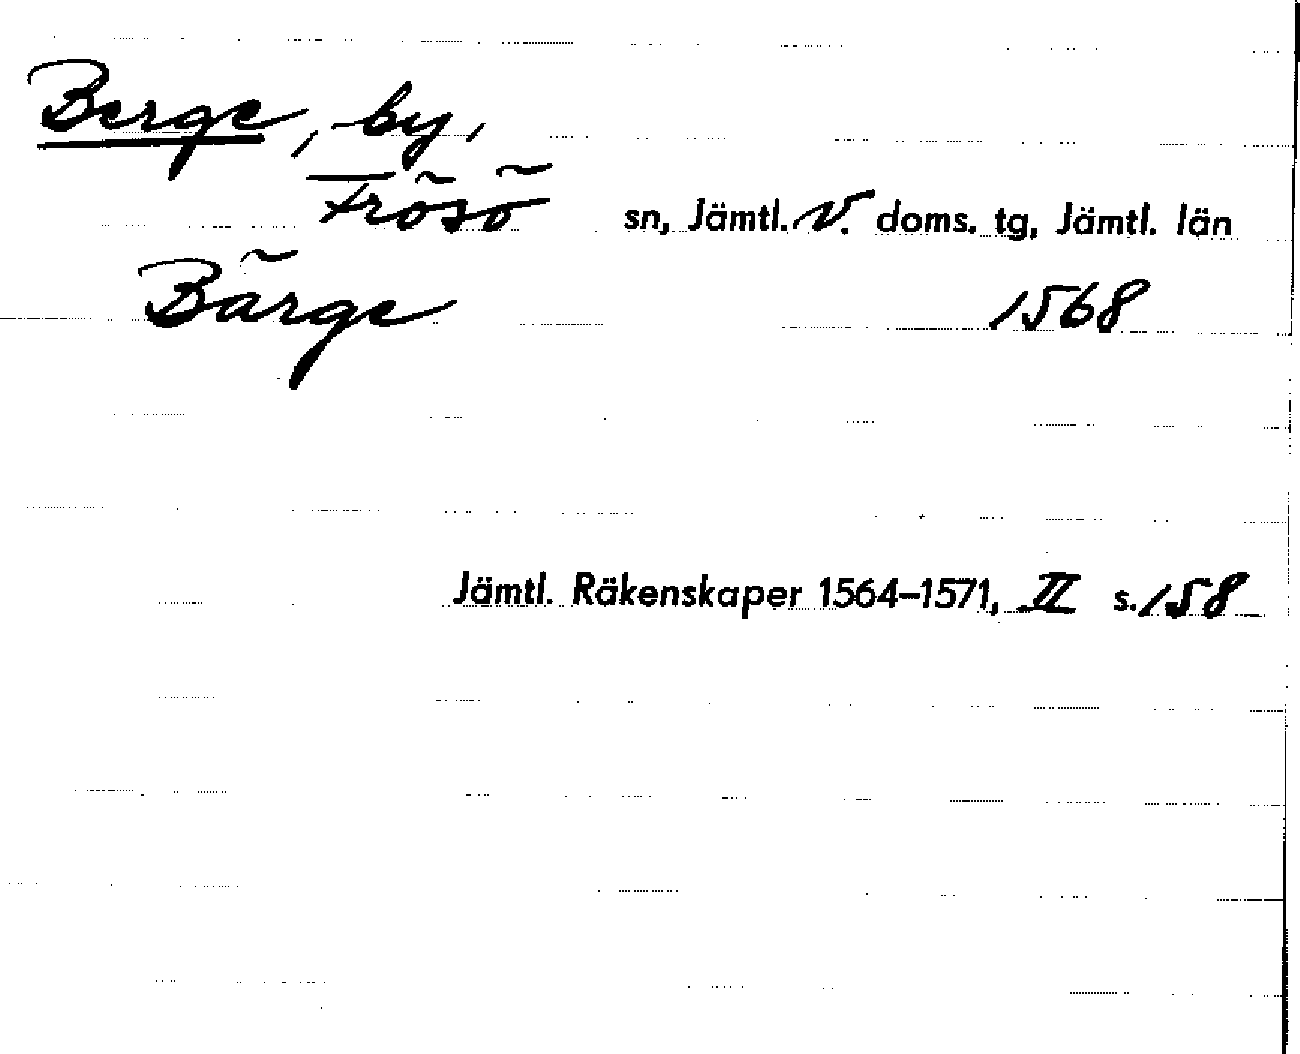 Berge, by,
Frösö sn, Jämtl. V. doms. tg, Jämtl. län
Bärge 1568
Jämtl. Räkenskaper 1564–1571, II s. 158